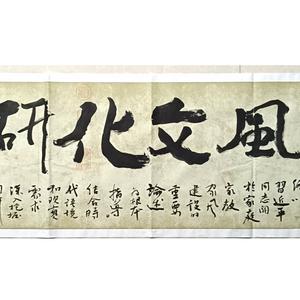 風文化研
習近平
同志關
於家庭
家教
家風
建設的
重要
論述
為根本
指導
結合時
代語境
和現實
需求
深入挖掘